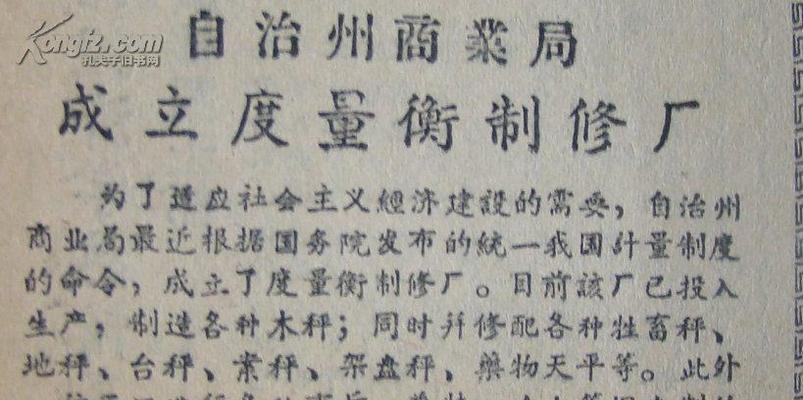 Kongfz.com
孔夫子旧书网
自治州商業局
成立度量衡制修厂
为了适应社会主义經济建設的需要，自治州
商业局最近根据国务院发布的統一我国計量制度
的命令，成立了度量衡制修厂。目前該厂已投入
生产，制造各种木秤；同时幷修配各种牲畜秤、
地秤、台秤、案秤、架盘秤、藥物天平等。此外